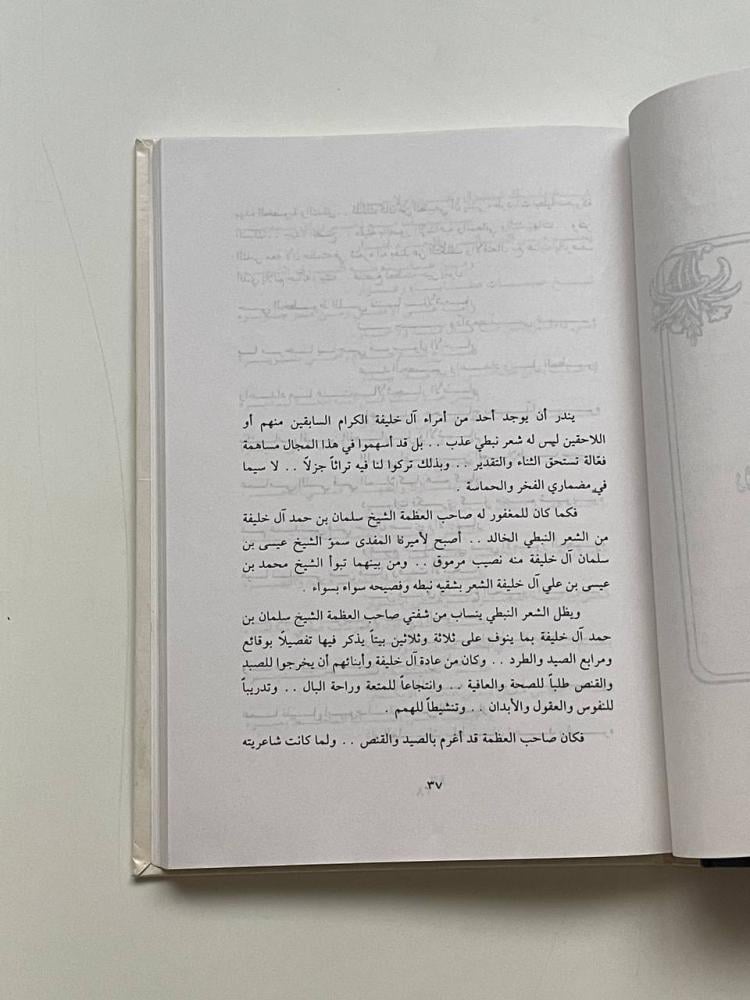 يندر أن يوجد أحد من أمراء آل خليفة الكرام السابقين منهم أو
اللاحقين ليس له شعر نبطي عذب . . بل قد أسهموا في هذا المجال مساهمة
فعّالة تستحق الثناء والتقدير . . وبذلك تركوا لنا فيه تراثاً جزلاً . . لا سيما
في مضماري الفخر والحماسة .
فكما كان للمغفور له صاحب العظمة الشيخ سلمان بن حمد آل خليفة
من الشعر النبطي الخالد . . أصبح لأميرنا المفدى سموّ الشيخ عيسى بن
سلمان آل خليفة منه نصيب مرموق . . ومن بينهما تبوأ الشيخ محمد بن
عيسى بن علي آل خليفة الشعر بشقيه نبطه وفصيحه سواء بسواء .
ويظل الشعر النبطي ينساب من شفتي صاحب العظمة الشيخ سلمان بن
حمد آل خليفة بما ينوف على ثلاثة وثلاثين بيتاً يذكر فيها تفصيلاً بوقائع
ومرابع الصيد والطرد . . وكان من عادة آل خليفة وأبنائهم أن يخرجوا للصيد
والقنص طلباً للصحة والعافية . . وانتجاعاً للمتعة وراحة البال . . وتدريباً
للنفوس والعقول والأبدان . . وتنشيطاً للهمم .
فكان صاحب العظمة قد أغرم بالصيد والقنص . . ولما كانت شاعريته
٣٧